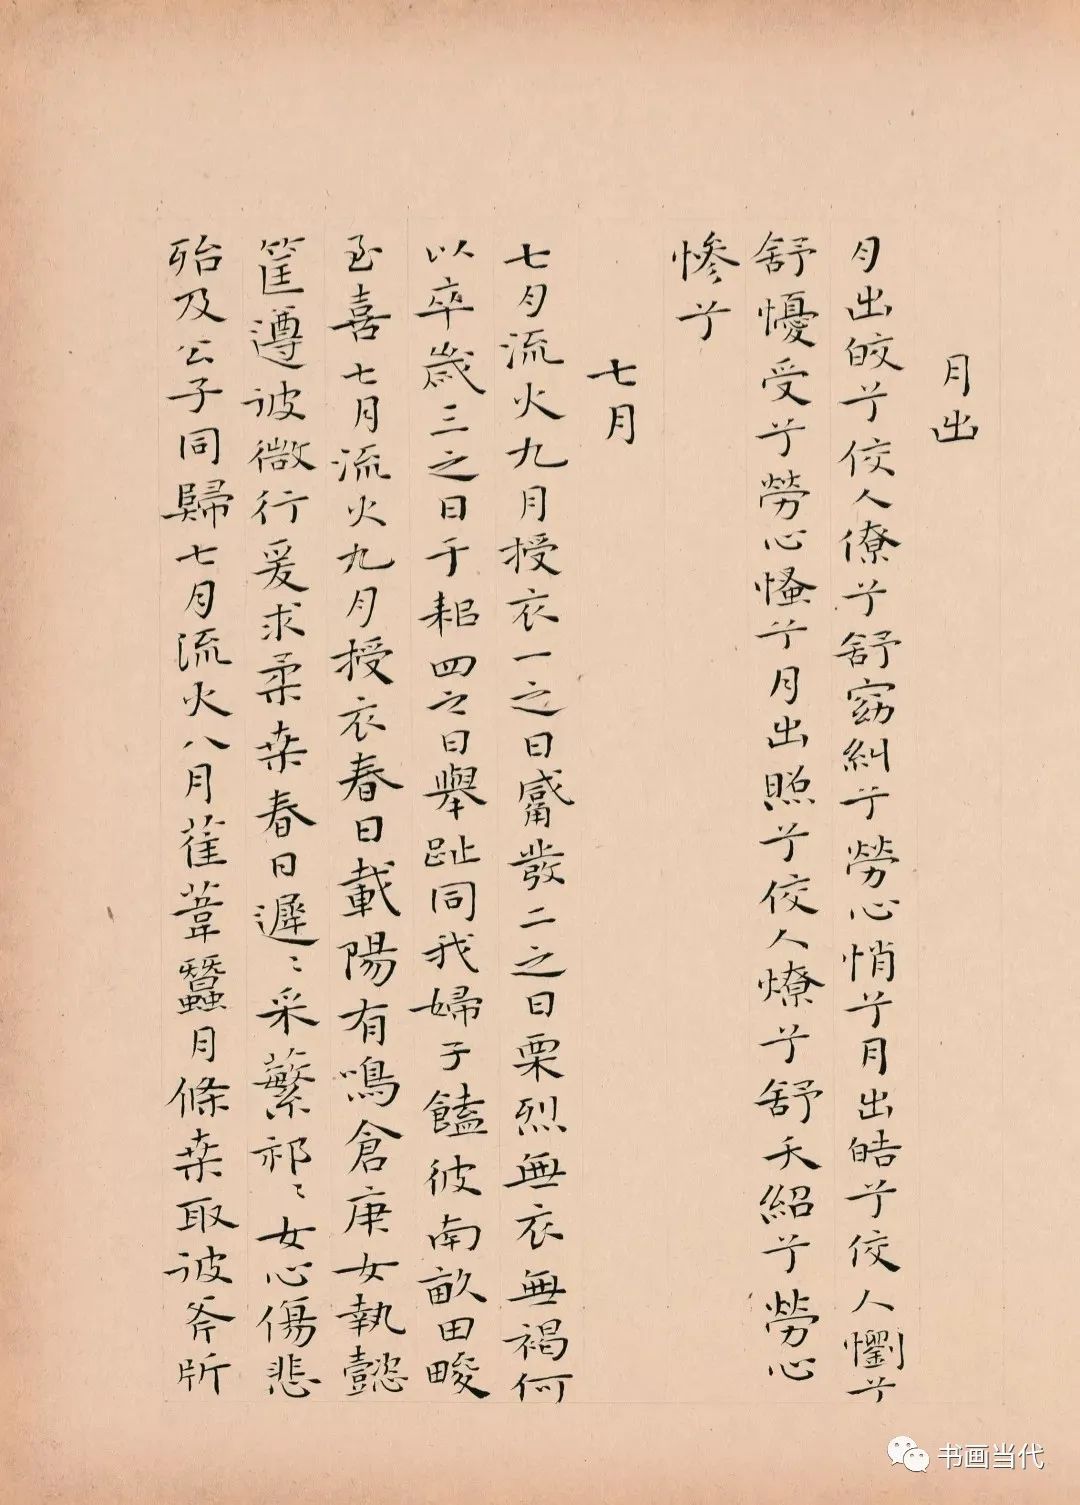 月出
月出皎兮佼人僚兮舒窈糾兮勞心悄兮月出皓兮佼人懰兮
舒懮受兮勞心慅兮月出照兮佼人燎兮舒夭紹兮勞心
慘兮
七月
七月流火九月授衣一之日觱發二之日栗烈無衣無褐何
以卒歲三之日于耜四之日舉趾同我婦子饁彼南畝田畯
至喜七月流火九月授衣春日載陽有鳴倉庚女執懿
筐遵彼微行爰求柔桑春日遲〻采蘩祁〻女心傷悲
殆及公子同歸七月流火八月萑葦蠶月條桑取彼斧斨
书画当代